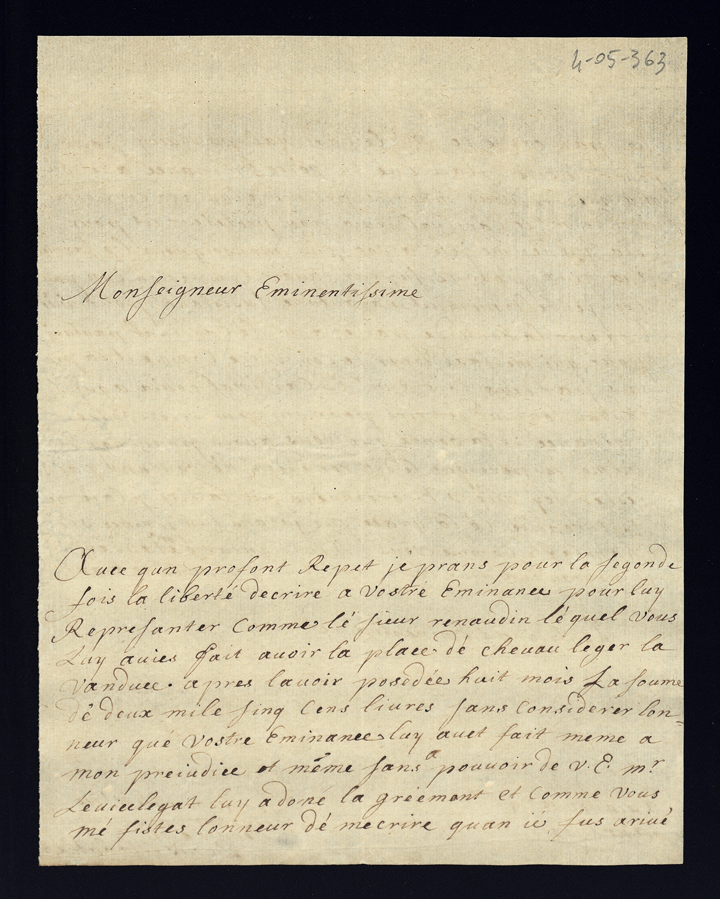 4-05-363
Monseigneur Eminentissime
Avec qun profont Repet je prans pour la segonde
fois la liberté decrire a vostre Eminance pour luy
Represanter comme lé sieur renaudin léquel vous
Luy avies fait avoir la place dé chevau leger la
vandüee apres lavoir posedée huit mois La soume
dé deux mile sinq cens livres sans considerer lon=
neur qué vostre Eminance luy avet fait meme a
mon preiudice et méme sans a pouvoir de v. E. mr
Levicelegat luy a doné la gréement et comme vous
mé fistes lonneur dé mecrire quan ié fus arivé